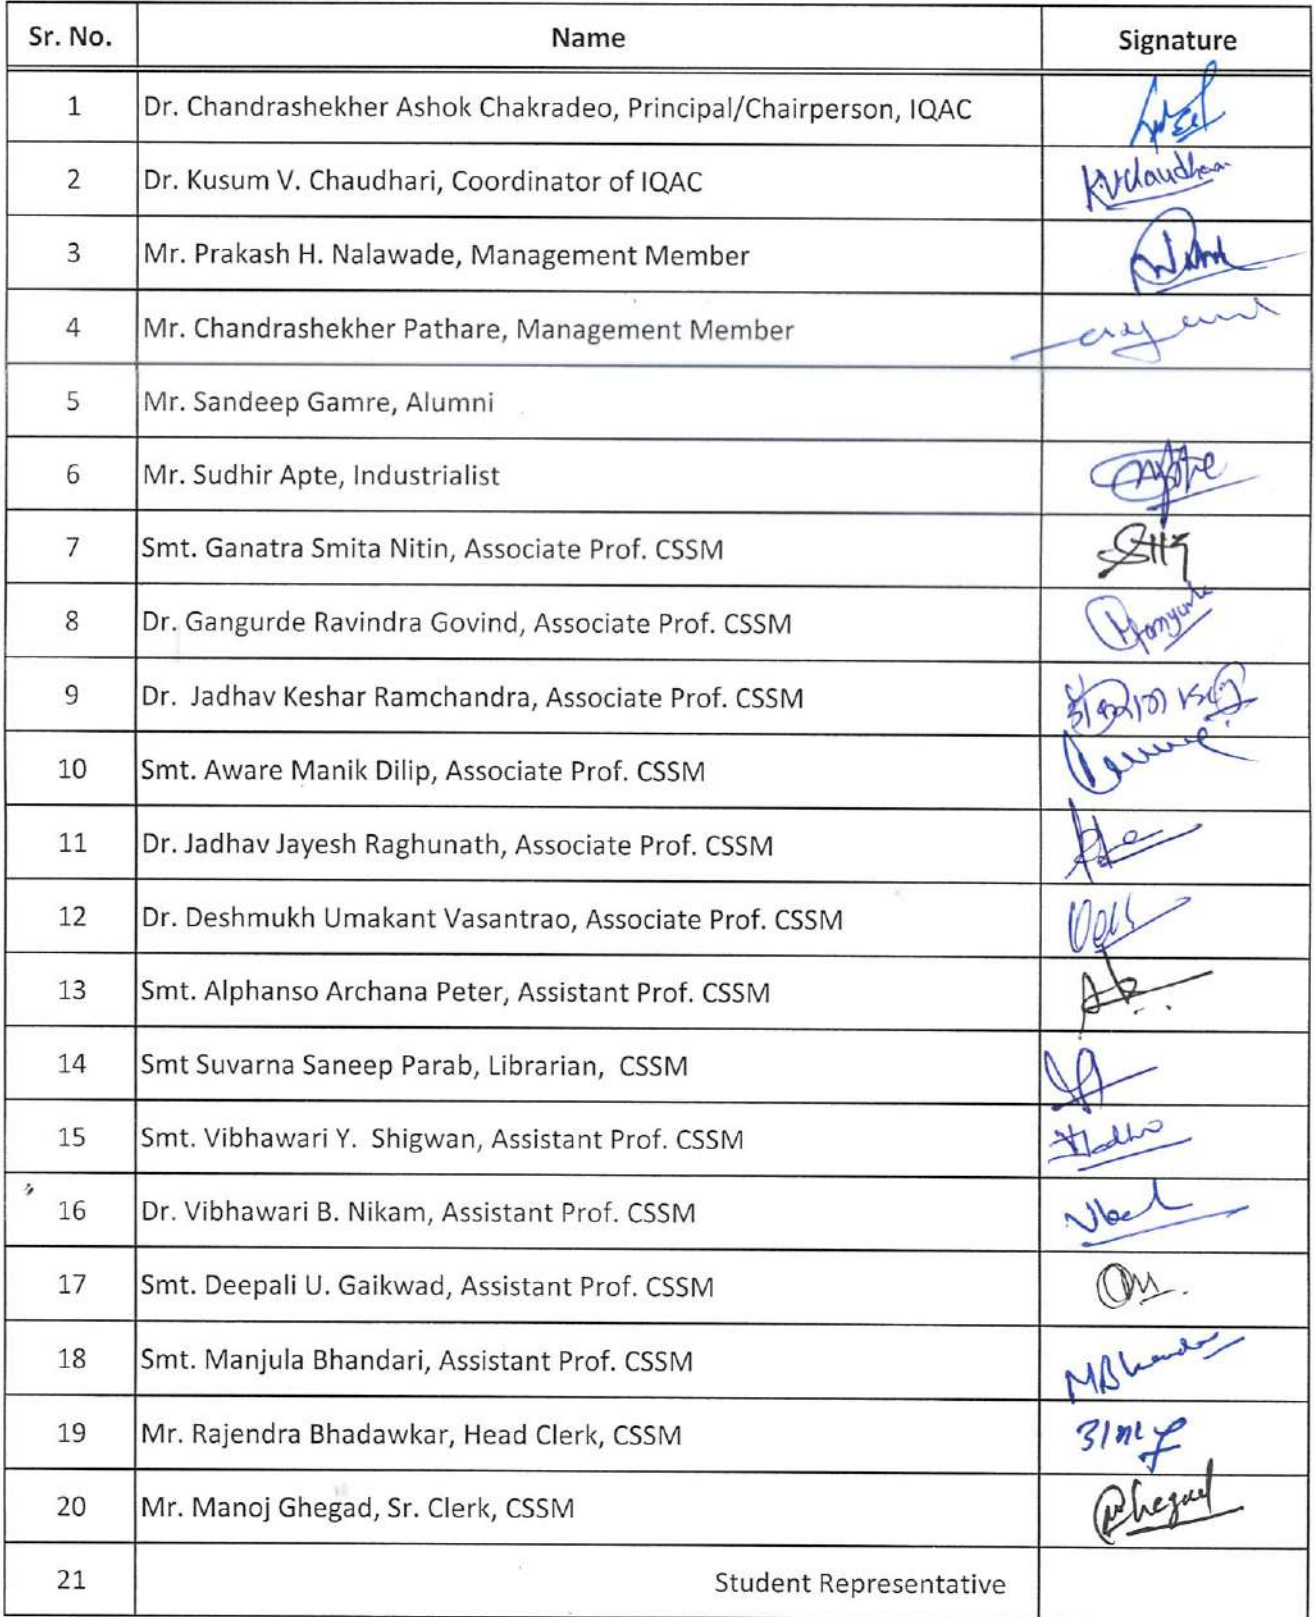 Sr. No. Name Signature
1 Dr. Chandrashekher Ashok Chakradeo, Principal/Chairperson, IQAC
2 Dr. Kusum V. Chaudhari, Coordinator of IQAC K.V.Chaudhari
3 Mr. Prakash H. Nalawade, Management Member
4 Mr. Chandrashekher Pathare, Management Member
5 Mr. Sandeep Gamre, Alumni
6 Mr. Sudhir Apte, Industrialist
7 Smt. Ganatra Smita Nitin, Associate Prof. CSSM
8 Dr. Gangurde Ravindra Govind, Associate Prof. CSSM
9 Dr. Jadhav Keshar Ramchandra, Associate Prof. CSSM
10 Smt. Aware Manik Dilip, Associate Prof. CSSM
11 Dr. Jadhav Jayesh Raghunath, Associate Prof. CSSM
12 Dr. Deshmukh Umakant Vasantrao, Associate Prof. CSSM
13 Smt. Alphanso Archana Peter, Assistant Prof. CSSM
14 Smt Suvarna Saneep Parab, Librarian, CSSM
15 Smt. Vibhawari Y. Shigwan, Assistant Prof. CSSM
16 Dr. Vibhawari B. Nikam, Assistant Prof. CSSM
17 Smt. Deepali U. Gaikwad, Assistant Prof. CSSM
18 Smt. Manjula Bhandari, Assistant Prof. CSSM
19 Mr. Rajendra Bhadawkar, Head Clerk, CSSM
20 Mr. Manoj Ghegad, Sr. Clerk, CSSM
21 Student Representative